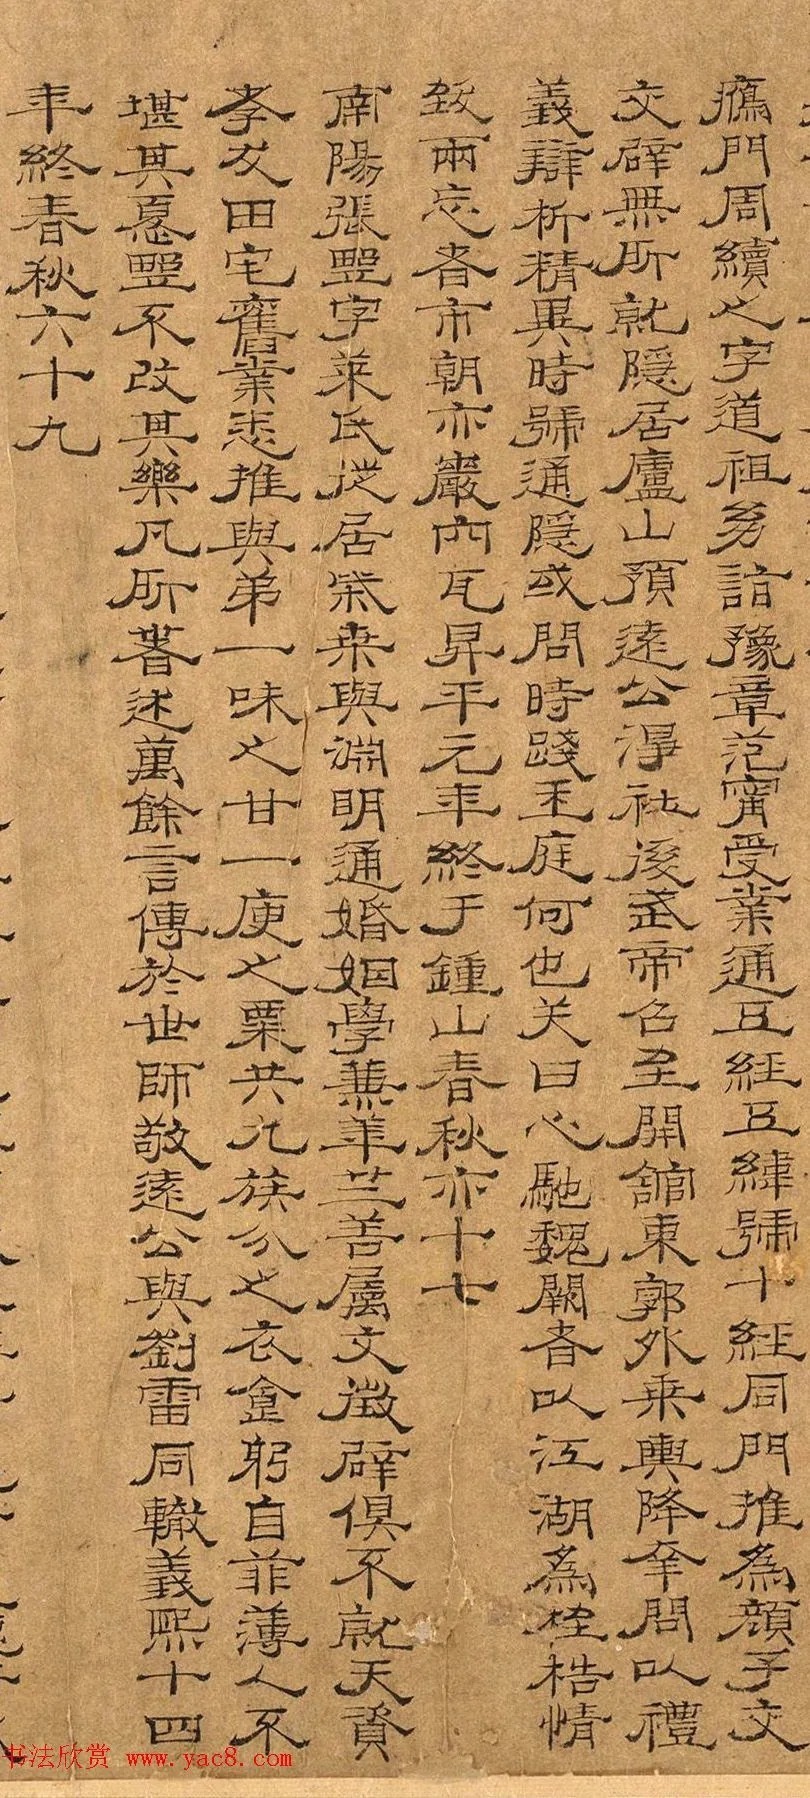 鴈門周續之字道祖努詣豫章范甯受業通五經五緯號十經同門推為顏子交
交辟無所就隱居廬山預遠公淨社後武帝召至開舘東郭外乗輿降幸問以禮
義辯析精異時號通隱或問時踐王庭何也关曰心馳魏闕者以江湖為桎梏情
致兩忘者市朝亦巖內瓦昇平元年終于鍾山春秋亦十七
南陽張野字萊氏徙居柴桒與淵明通婚姻學兼華竺善属文徵辟俱不就天資
孝友田宅舊業悉推與弟一味之甘一庾之粟共九族分之衣食躬自菲薄人不
堪其憂野不改其樂凡所著述萬餘言傳於世師敬遠公與劉雷同轍義熙十四
年終春秋六十九
书法欣赏 www.yac8.com